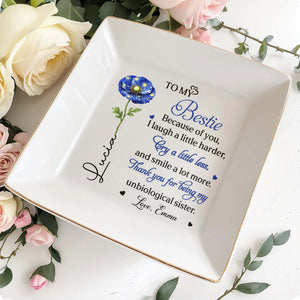 TO MY
Bestie
Because of you,
I laugh a little harder,
Cry a little less,
and smile a lot more.
Thank you for being my
unbiological sister.
Love, Emma
Lucia